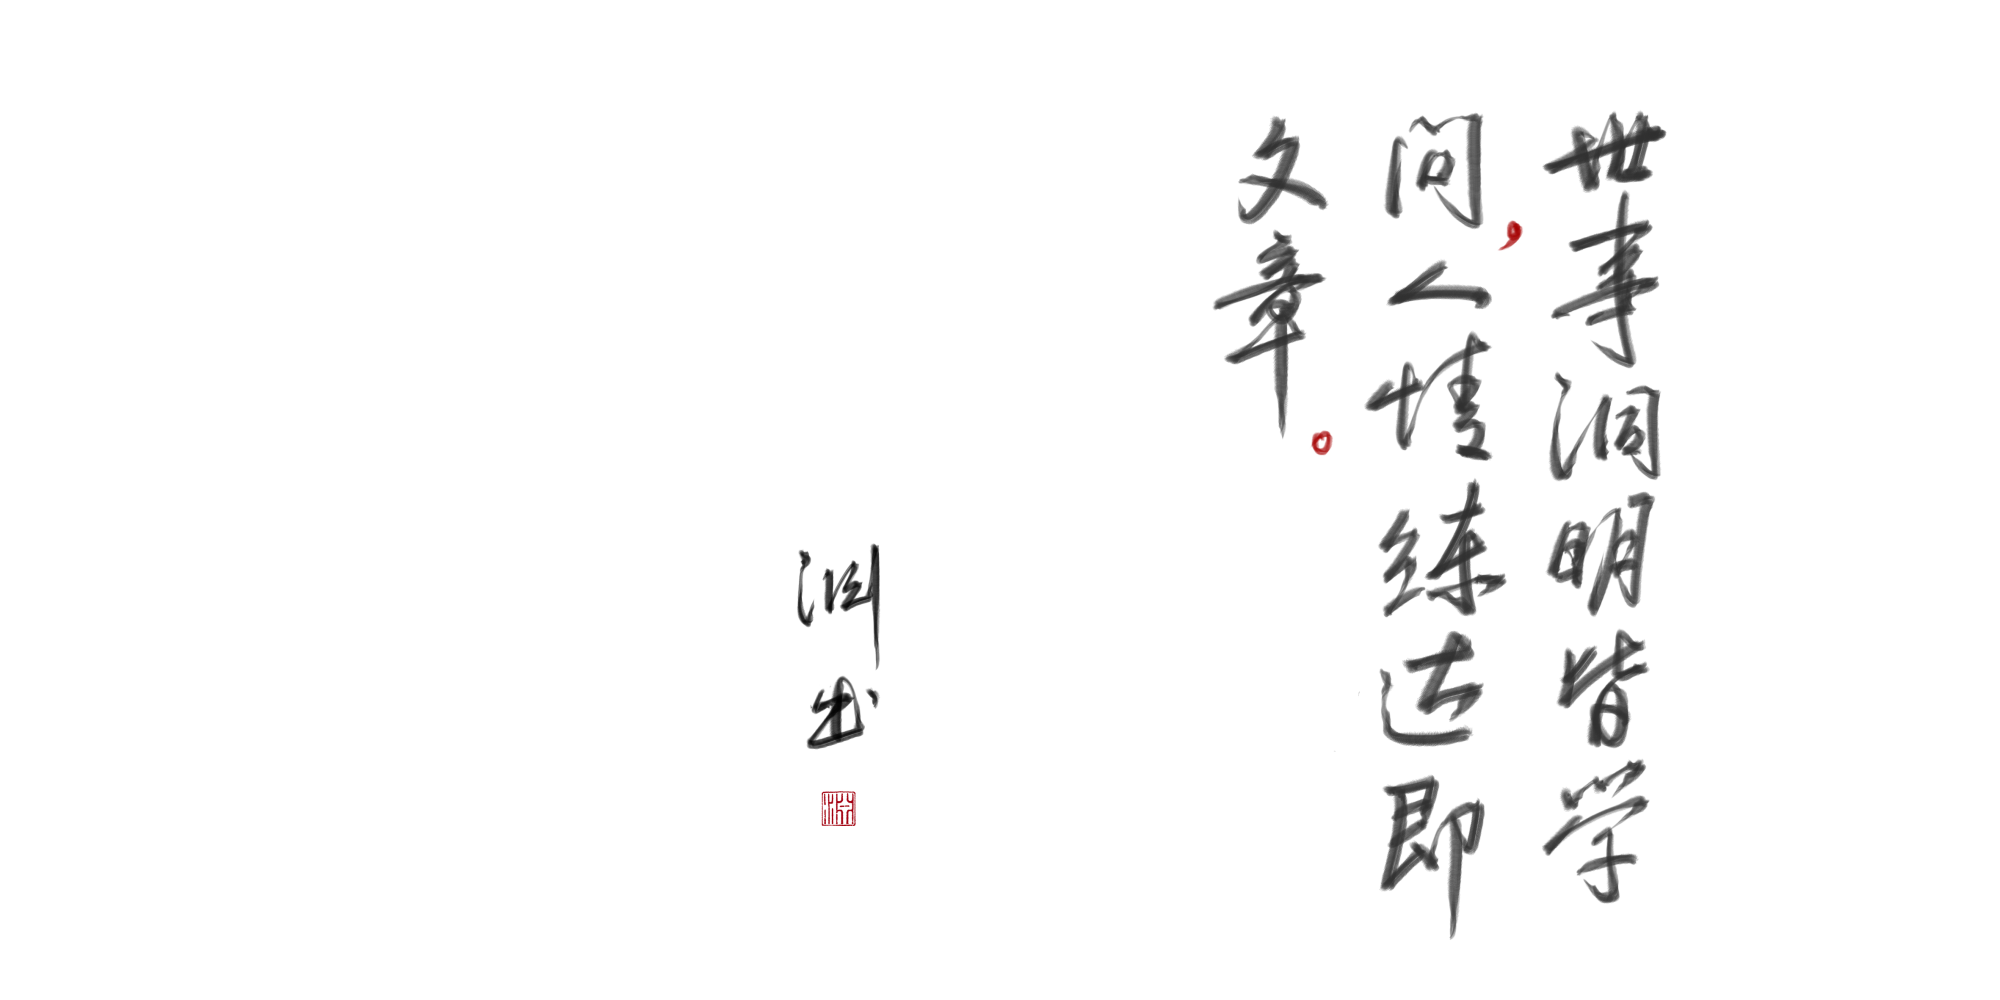 世事洞明皆学
问，人情练达即
文章。
渊书
渊